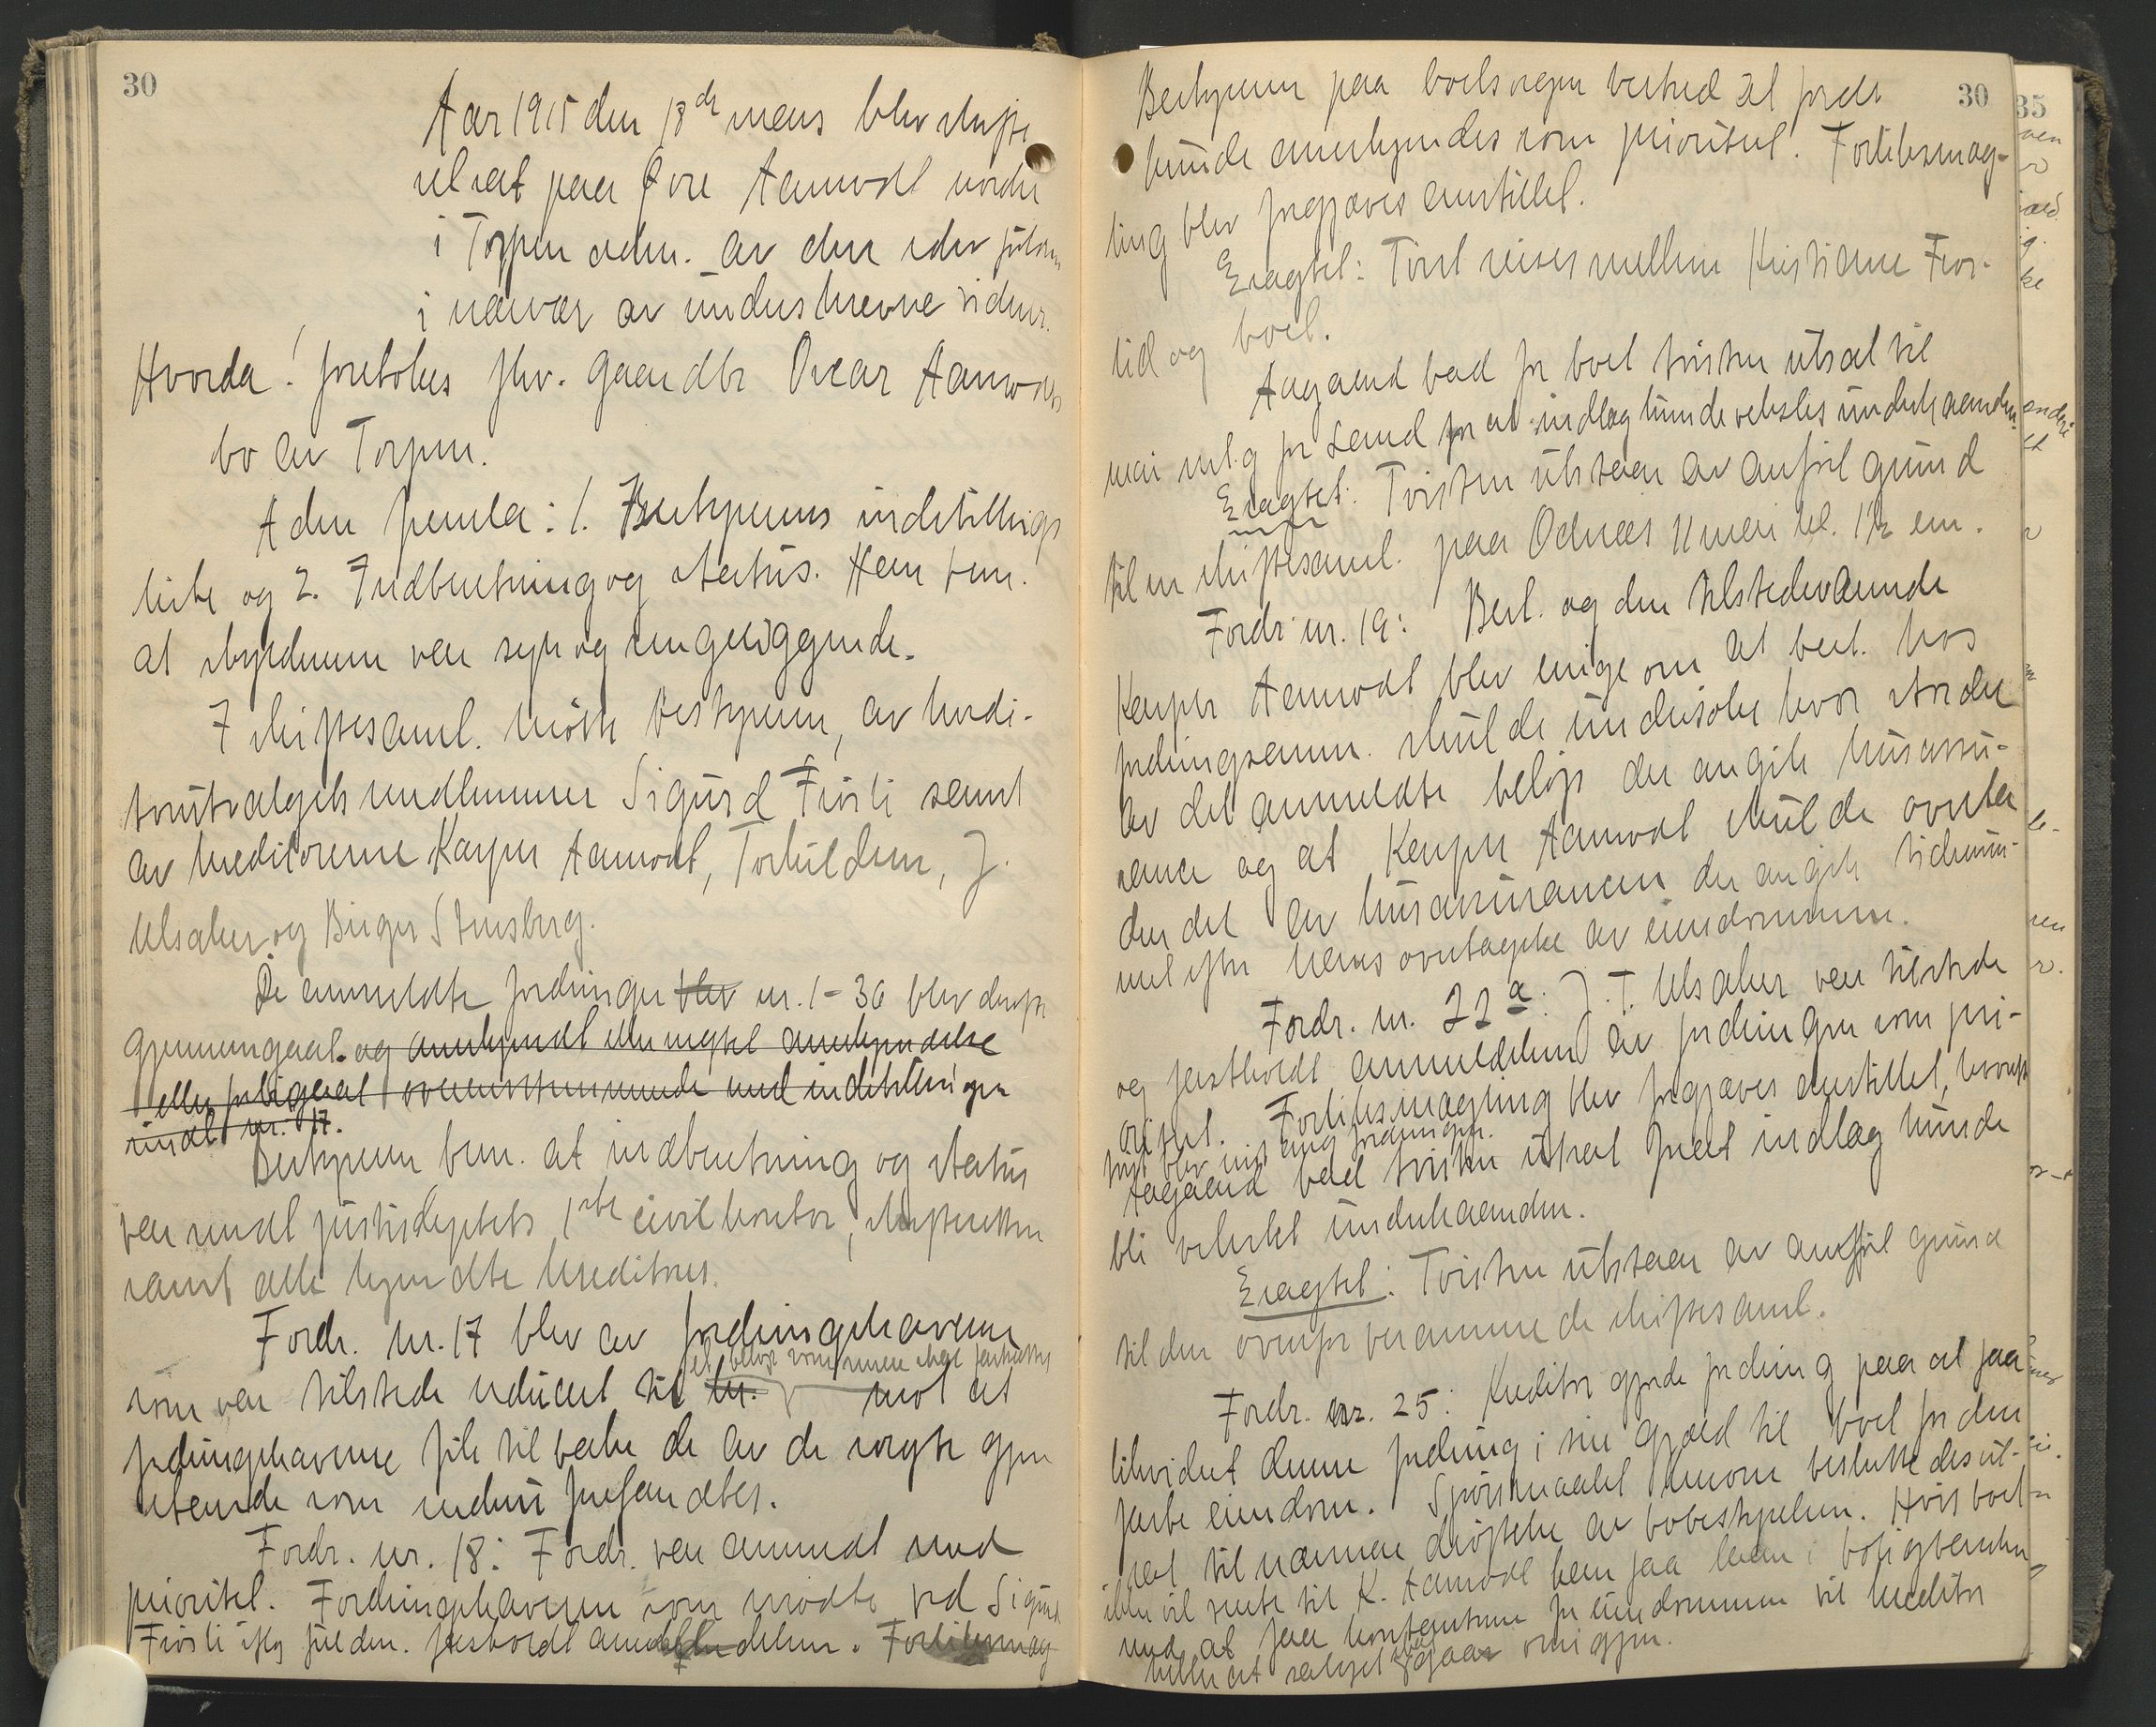 30
Aar 1915 den 18de mars blev skifte
ret sat paa Øvre Aamodt nordre
i Torpen adm. av den edsv fuldm
i nærvær av underskrevne vidner.
Hvorda! foretokes fhv. gaardbr Oscar Aamodts
bo av Torpen.
Adm fremla: 1. Bestyrerens indstillings
liste og 2. Indberetning og status. Han bem.
at skyldneren var syk og sengeliggende.
I skiftesaml. møtte bestyreren, av kredi-
torutvalgets medlemmer Sigurd Fiösli samt
av kreditorerne Kasper Aamodt, Torkildsen, J.
Ulsaker og Birger Stensberg.
De anmeldte fordringer blev nr. 1-36 blev derefter
gjennemgaat. og anerkjendt eller negtet anerkjendelse
eller forbigaat overensstemmende med indstillingen
undt nr. 17.
Bestyreren bem. at indberetning og status
var sendt justisdeptets 1ste civilkontor, skifteretten
samt alle kjendte kreditorer.
Fordr. nr. 17 blev av fordringshaveren
et beløp som senere skal fastsættes
som var tilstede reducert til kr. mot at
fordringshaveren fik tilbake de av de solgte gjen
stande som endnu forefandtes.
Fordr. nr. 18: Fordr. var anmeldt med
prioritet. Fordringshaveren som mødte ved Sigurd
Fiösli ifølg fuldm. fastholdt anmeldelsen. Forliksmæg
Bestyreren paa boets vegne bestred at fordr. 30
kunde anerkjendes som prioritet. Forliksmæg-
ling blev forgjæves anstillet.
Eragtet: Tvist reises mellem Kristiane Fios-
lid og boet.
Aagaard bad for boet tvisten utsat til
mai md. g for Land for at indlæg kunde veksles underhaanden.
Eragtet: Tvisten utstaar av anført grund
til en skiftesaml. paa Odnæs 11 mai kl. 1½ em.
Fordr nr. 19: Best. og den tilstedeværende
Kasper Aamodt blev enige om at best. hos
fordringsanm. skulde undersøke hvor stor del
av det anmeldte beløp der angik husassu-
rance og at Kasper Aamodt skulde overta
den del av husassurancen der angik tidsrum-
met efter hans overtagelse av eiendommen.
Fordr. nr. 22a: J. T. Ulsaker var tilstede
og fastholdt anmeldelsen av fordringen som pri-
oritet. Forliksmægling blev forgjæves anstillet, hvorefter
tvist blev reist ang fordringen.
Aagaard bad tvisten utsat for at indlæg kunde
bli vekslet underhaanden.
Eragtet: Tvisten utstaar av anført grund
til den ovenfor berammede skiftesaml.
Fordr. nr. 25: Kreditor gjorde fordring paa at faa
likvidert denne fordring i sin gjæld til boet for den
faste eiendom. Spørsmaalet herom besluttedes ut-
sat til nærmere drøftelse av bobestyrelsen. Hvis boet
ikke vil vente til K. Aamodt kan faa laan i boligbanken
med at faa kontanterne for eiendommen vil kreditor
heller at salget gaar om igjen.
35